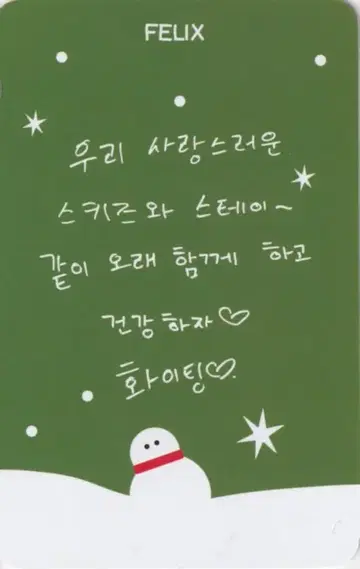 FELIX
우리 사랑스러운
스키즈와 스테이~
같이 오래 함께 하고
건강하자♡
화이팅♡.